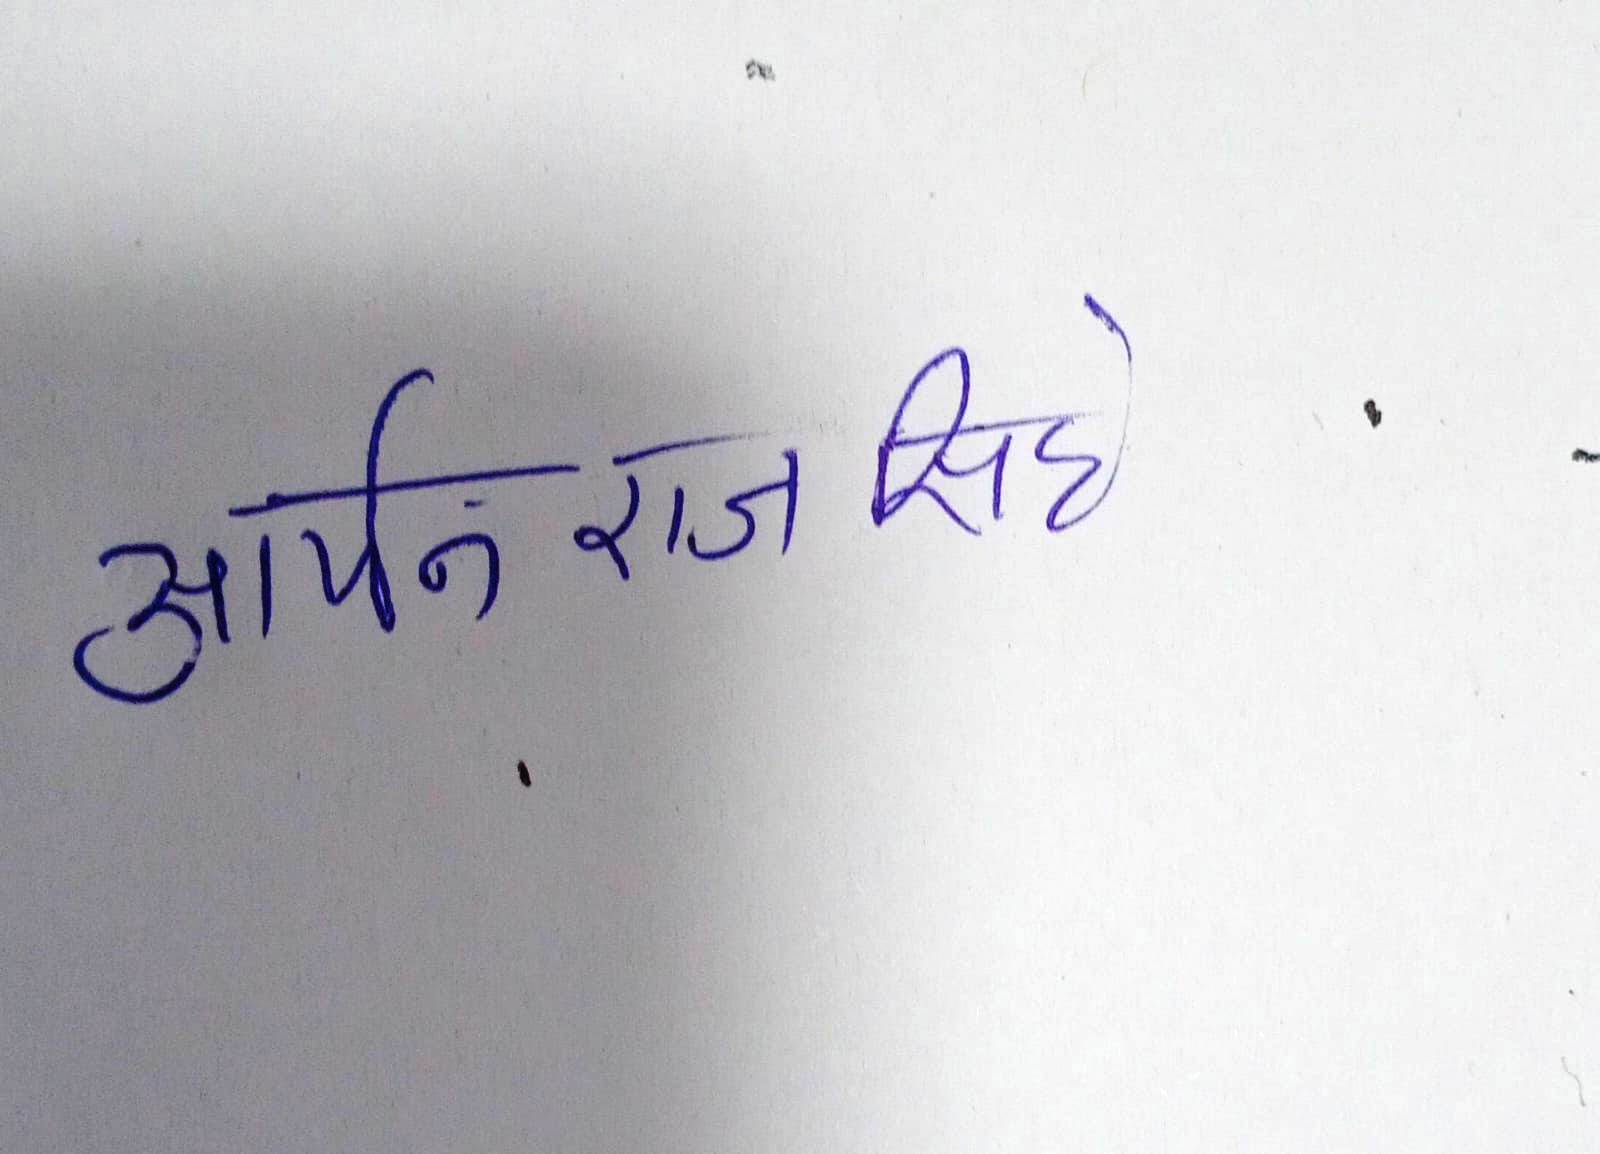 आर्पन राज सिंह